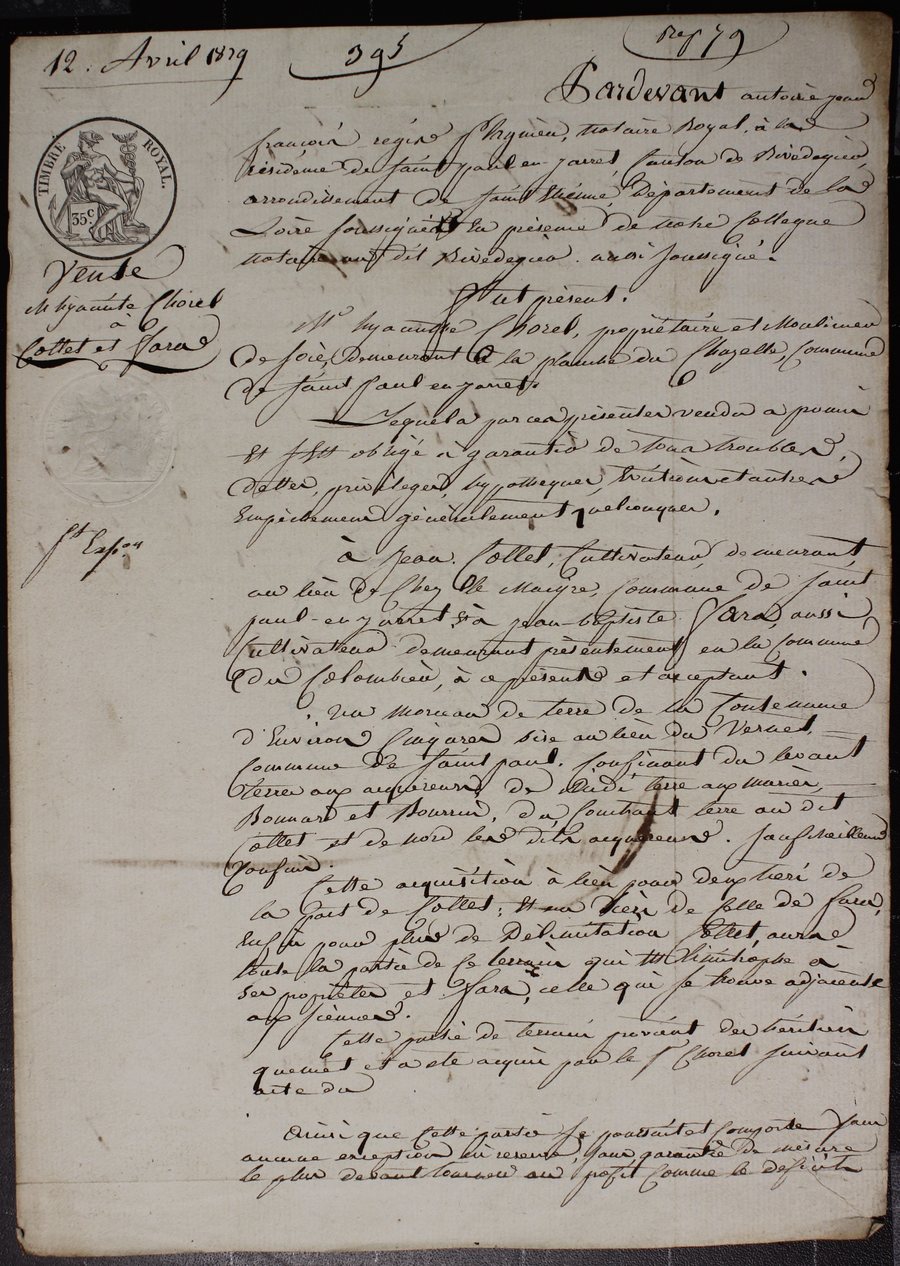 12. Avril 1829
395
rep 79
TIMBRE ROYAL.
35 c
Vente
M hyacinte Chorel
à
Collet et Fara
St Exp.on
Pardevant antoine jean
françois régis notaire Royal, à la
résidence de Saint paul en jarret, Canton de Rivedegier,
arrondissement de Saint Etienne Département de la
Loire soussigné Et en présence de notre Collegue
notaire au dit Rivedegier. aussi soussigné.
fut présent.
Mr hyacinthe Chorel, propriétaire et Moulinier
de soie, Demeurant à la planche du Chazelle, Commune
de Saint Paul en jarret.
Lequel a par ces présentes vendu a promis
Et s'Est obligé à garantir de tous troubles,
dettes, privileges, hypotheques, Evictions et autres
Empêchemens généralement quelconques.
à Jean Collet, Cultivateur, demeurant
au lieu de Chez le Maigre, Commune de Saint
paul-en-jarret, Et à jean-baptiste Fara, aussi
Cultivateur demeurant présentement en la Commune
du Colombier, à ce présents et acceptant.
Un morceau de terre de la Contenance
d'Environ Cinq ares sise au lieu du Vernet,
Commune de Saint paul. Confinant du levant
terre aux acquereurs de Midi terre aux mariés
Bonnard et Bourrin, du Couchant terre au dit
Collet et de nord les dits acquereurs. Sauf meilleurs
Confins.
Cette acquisition à lieu pour deux tiers de
la part de Collet; Et un tiers de Celle de Fara,
Enfin pour plus de Délimitation Collet, aura
toute la partie de Ce terrain qui Est limitrophe à
ses propriétés et Fara, celle qui se trouve adjacente
aux siennes.
Cette partie de terrain provient des héritiers
quemet et a été acquis par le Sr Chorel suivant
acte du
Ainsi que Cette partie se poursuit et comporte sans
aucune exception ni reserve, sans garantie De mesure
le plus devant tourner au profit Comme le deficit